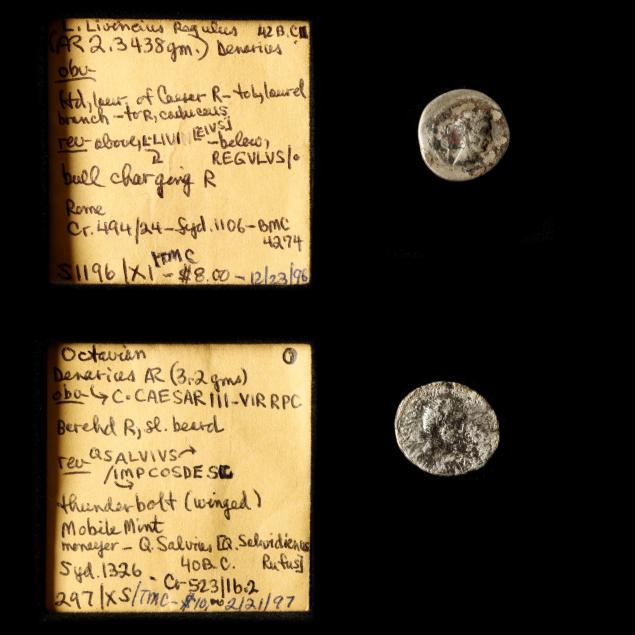 L. Livineius Regulus 42 B.C.
(AR 2.3438gm.) Denarius
obv
Hd, laur. of Caesar R - to L, laurel
branch - to R, caduceus
rev above, L·LIVI [EIVS] - below,
REGVLVS/.
bull charging R
Rome
Cr. 494/24 - Syd. 1106 - BMC
4274
TMC
S1196/X1 - $8.00 - 12/23/96
Octavian
Denarius AR (3.2 gms)
obv → C·CAESAR III-VIR RPC
Barehd R, sl. beard
rev Q SALVIVS →
/IMP COS DESG
thunderbolt (winged)
Mobile Mint
moneyer - Q. Salvius [Q. Salvidienus
Syd. 1326 40 B.C. Rufus]
- Cr 523/1b.2
297/XS/TMC - $10.00 2/21/97